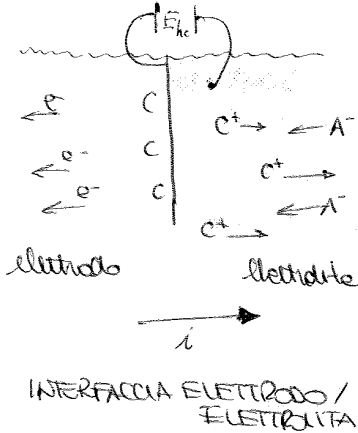 E_hc
e⁻ C C⁺ A⁻
e⁻ C C⁺
e⁻ C C⁺ A⁻
elettrodo elettrolita
i
INTERFACCIA ELETTRODO /
ELETTROLITA